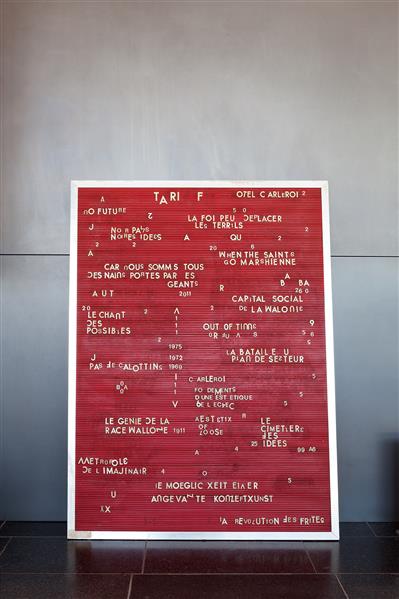 A TARI F OTEL CARLEROI 2
NO FUTURE 2 5 0
LA FOI PEU DEPLACER
LES TERRILS
J
NO R PAYS
NOTRES IDEES A QU 2 2
2 2 20 6
A WHEN THE SAINTS
GO MARSHIENNE
CAR NOUS SOMM S TOUS
DES NAINS PORTES PAR ES
GEANTS
A
B BA
R 20 0
A UT 2011
CAPITAL SOCIAL
DE LA WALONIE
20
LE CHAUT
DES
POSSIBLES
OUT OF TIME 9
6
5
2
1975
J 1972
PAS DE CALOTTINS 1969
LA BATAIL E U
PLAN DE SECTEUR
C ARLEROI 5
FO DEMENTS
D UNE EST ETIQUE
DE L ECHEC 5
V
LE GENIE DE LA
RACE WALLONE 1911
AESTETIX R
OF
LOOSE
LE
CIMETIERE
DES
IDEES
4 25
99 A6
A
METROPOLE
DE L IMAJINAIR
4 O 5
IE MOEGLIC XEIT EINER
ANGEVAN TE KONZEPTXUNST
U
XX
LA REVOLUTION DES FRITES